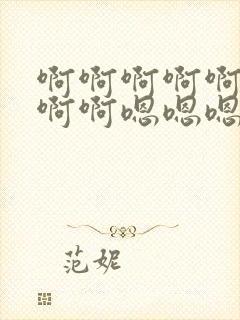 啊啊啊啊啊
啊啊嗯嗯嗯
范妮